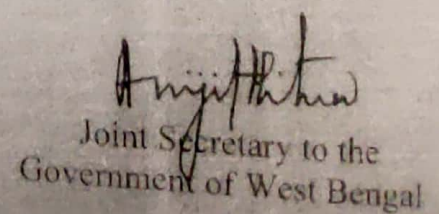 Joint Secretary to the
Government of West Bengal